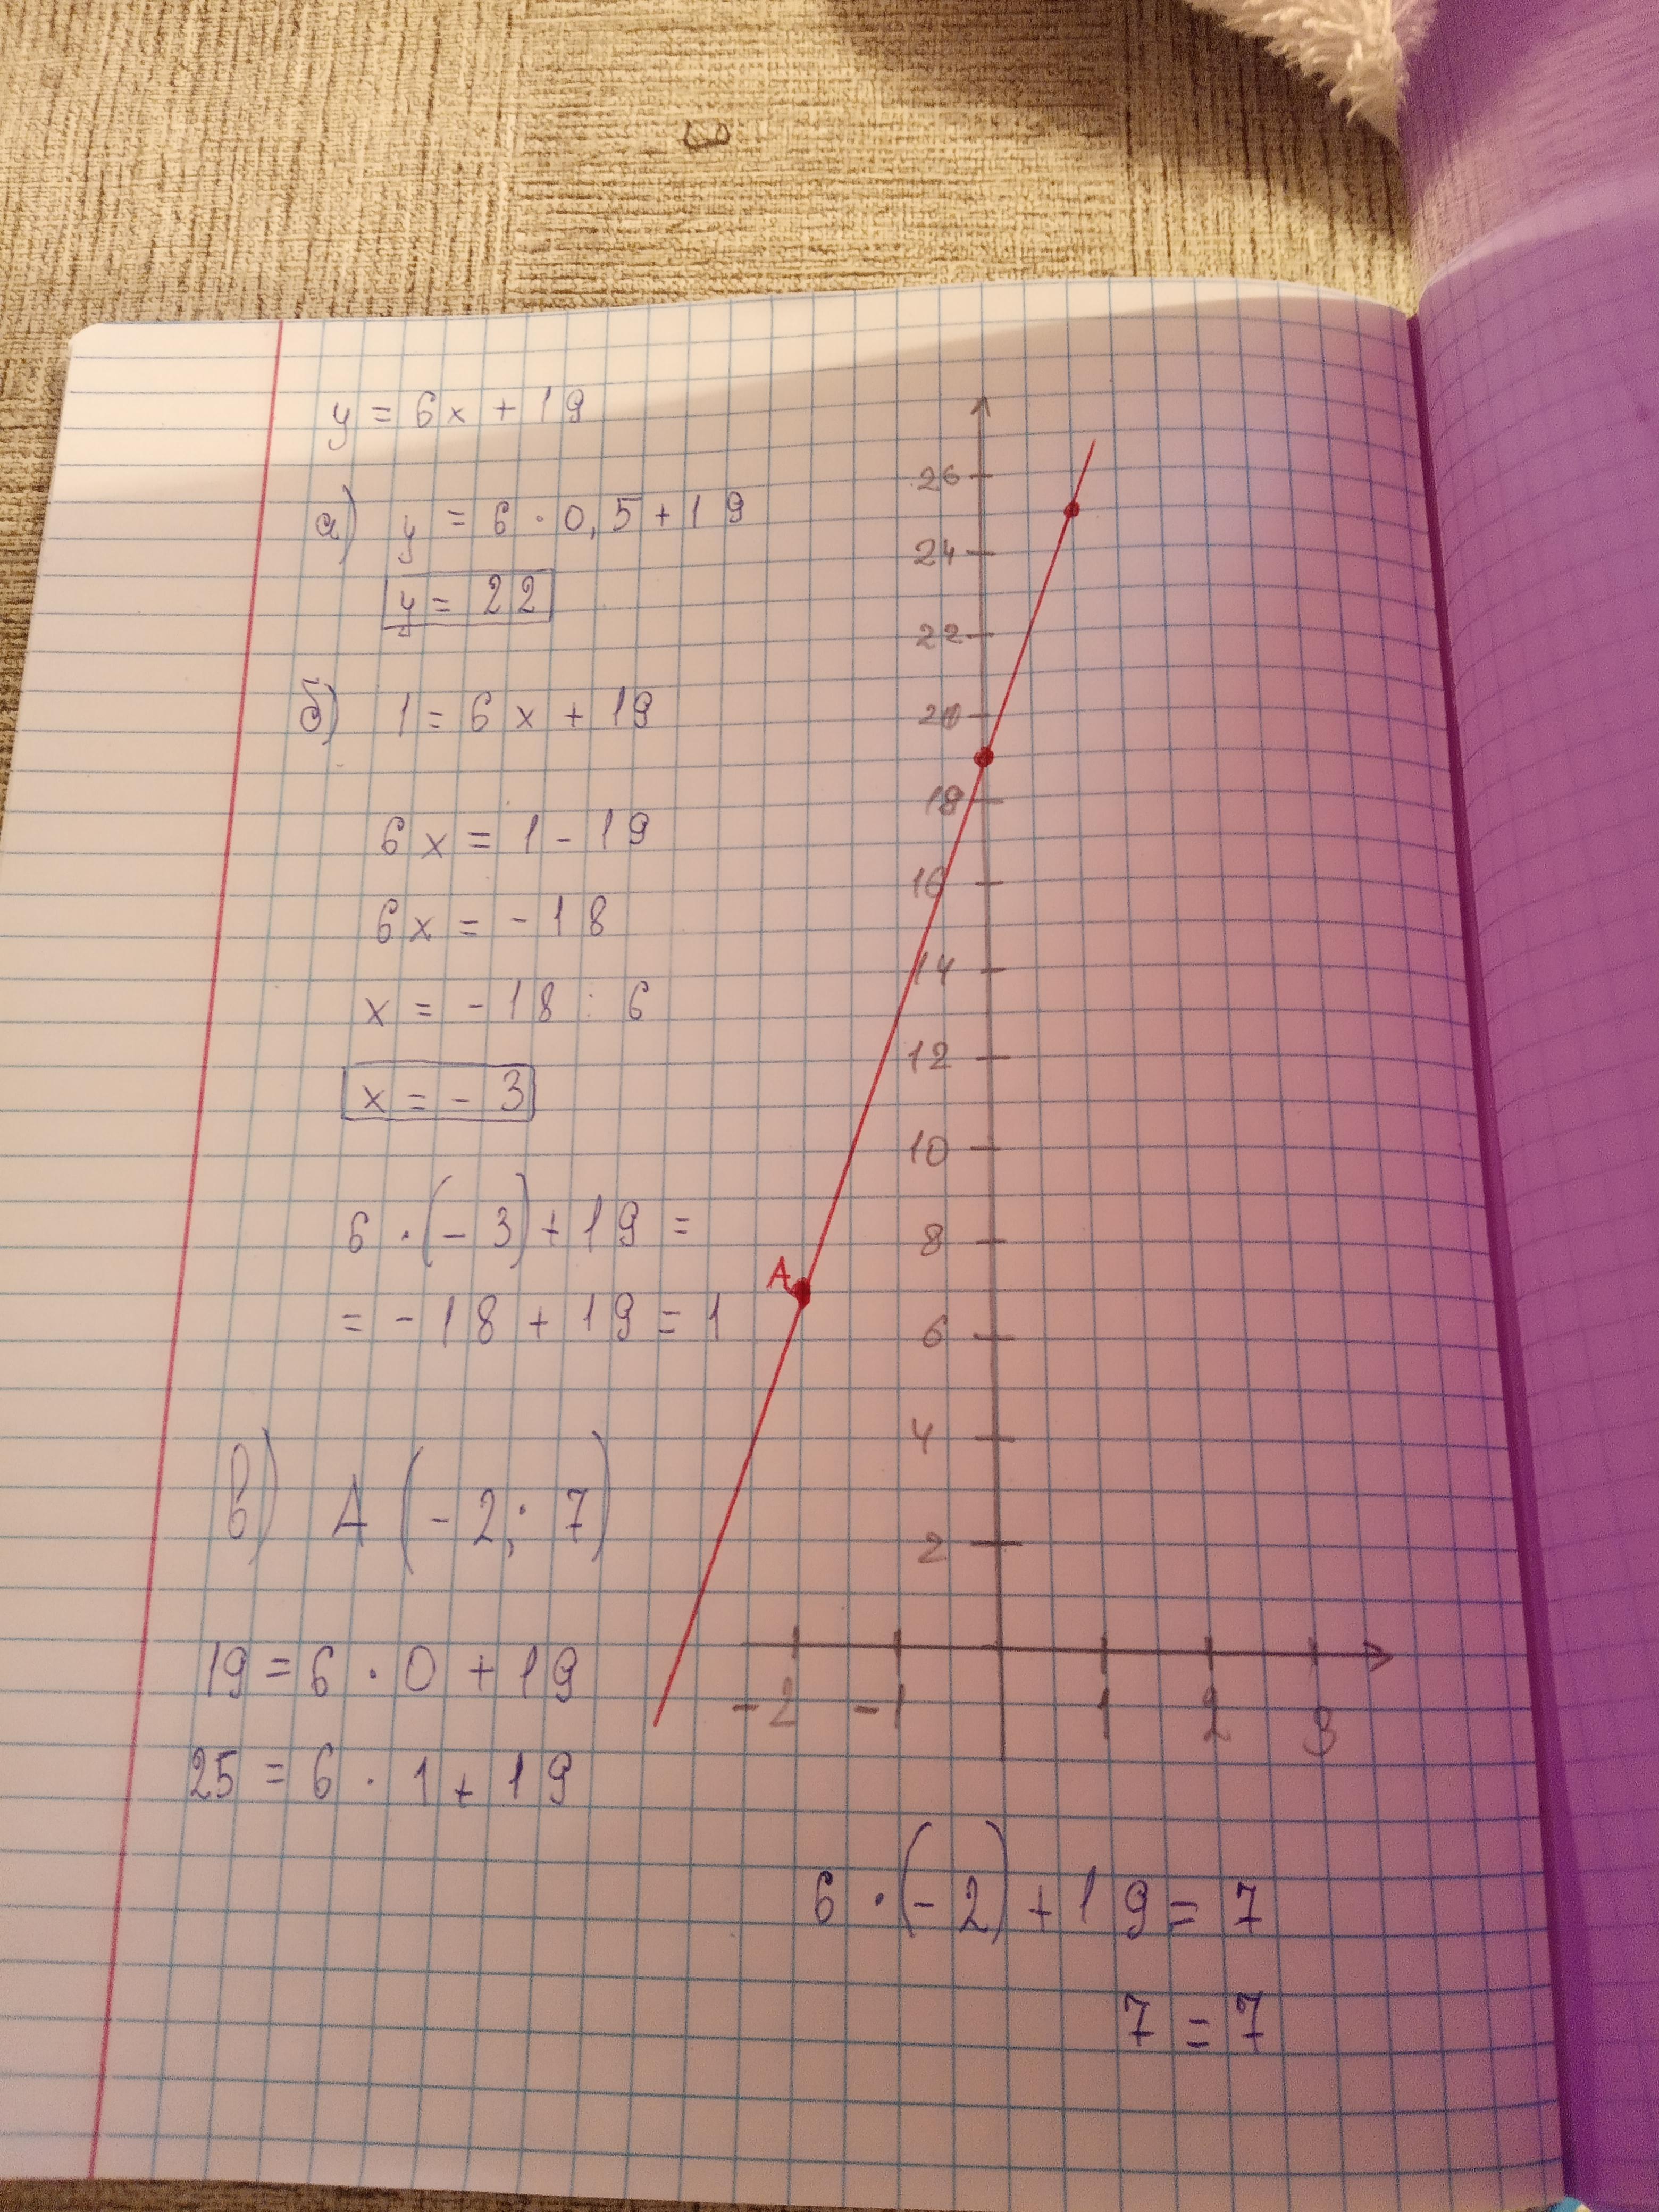 y = 6x + 19
а) y = 6 · 0,5 + 19
y = 22
б) 1 = 6x + 19
6x = 1 - 19
6x = - 18
x = - 18 : 6
x = - 3
6 · (- 3) + 19 =
= - 18 + 19 = 1
в) A (- 2; 7)
19 = 6 · 0 + 19
25 = 6 · 1 + 19
26
24
22
20
18
16
14
12
10
8
A
6
4
2
-2 -1 1 2 3
6 · (- 2) + 19 = 7
7 = 7